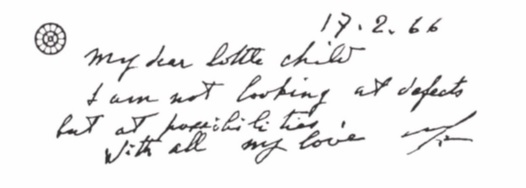 17.2.66
My dear little child
I am not looking at defects
but at possibilities.
With all my love